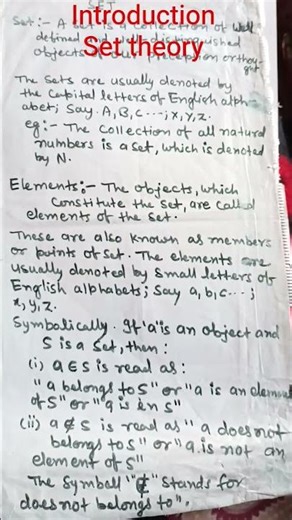 SET
Introduction
Set theory
Set:- A set is a collection of well
defined and well distinguished
objects of our perception or thou-
ght
The sets are usually denoted by
the capital letters of English alph-
abet; Say A, B, C ...; X, Y, Z.
eg:- The collection of all natural
numbers is a set, which is denoted
by N.
Elements:- The objects, which
constitute the set, are called
elements of the set.
These are also known as members
or points of set. The elements are
usually denoted by small letters of
English alphabets; Say a, b, c...;
x, y, z.
Symbolically. If 'a' is an object and
S is a set, then:
(i) a ∈ S is read as:
"a belongs to S" or "a is an element
of S" or "a is in S"
(ii) a ∉ S is read as "a does not
belongs to S" or "a is not an
element of S"
The Symball "∉" stands for
does not belongs to".